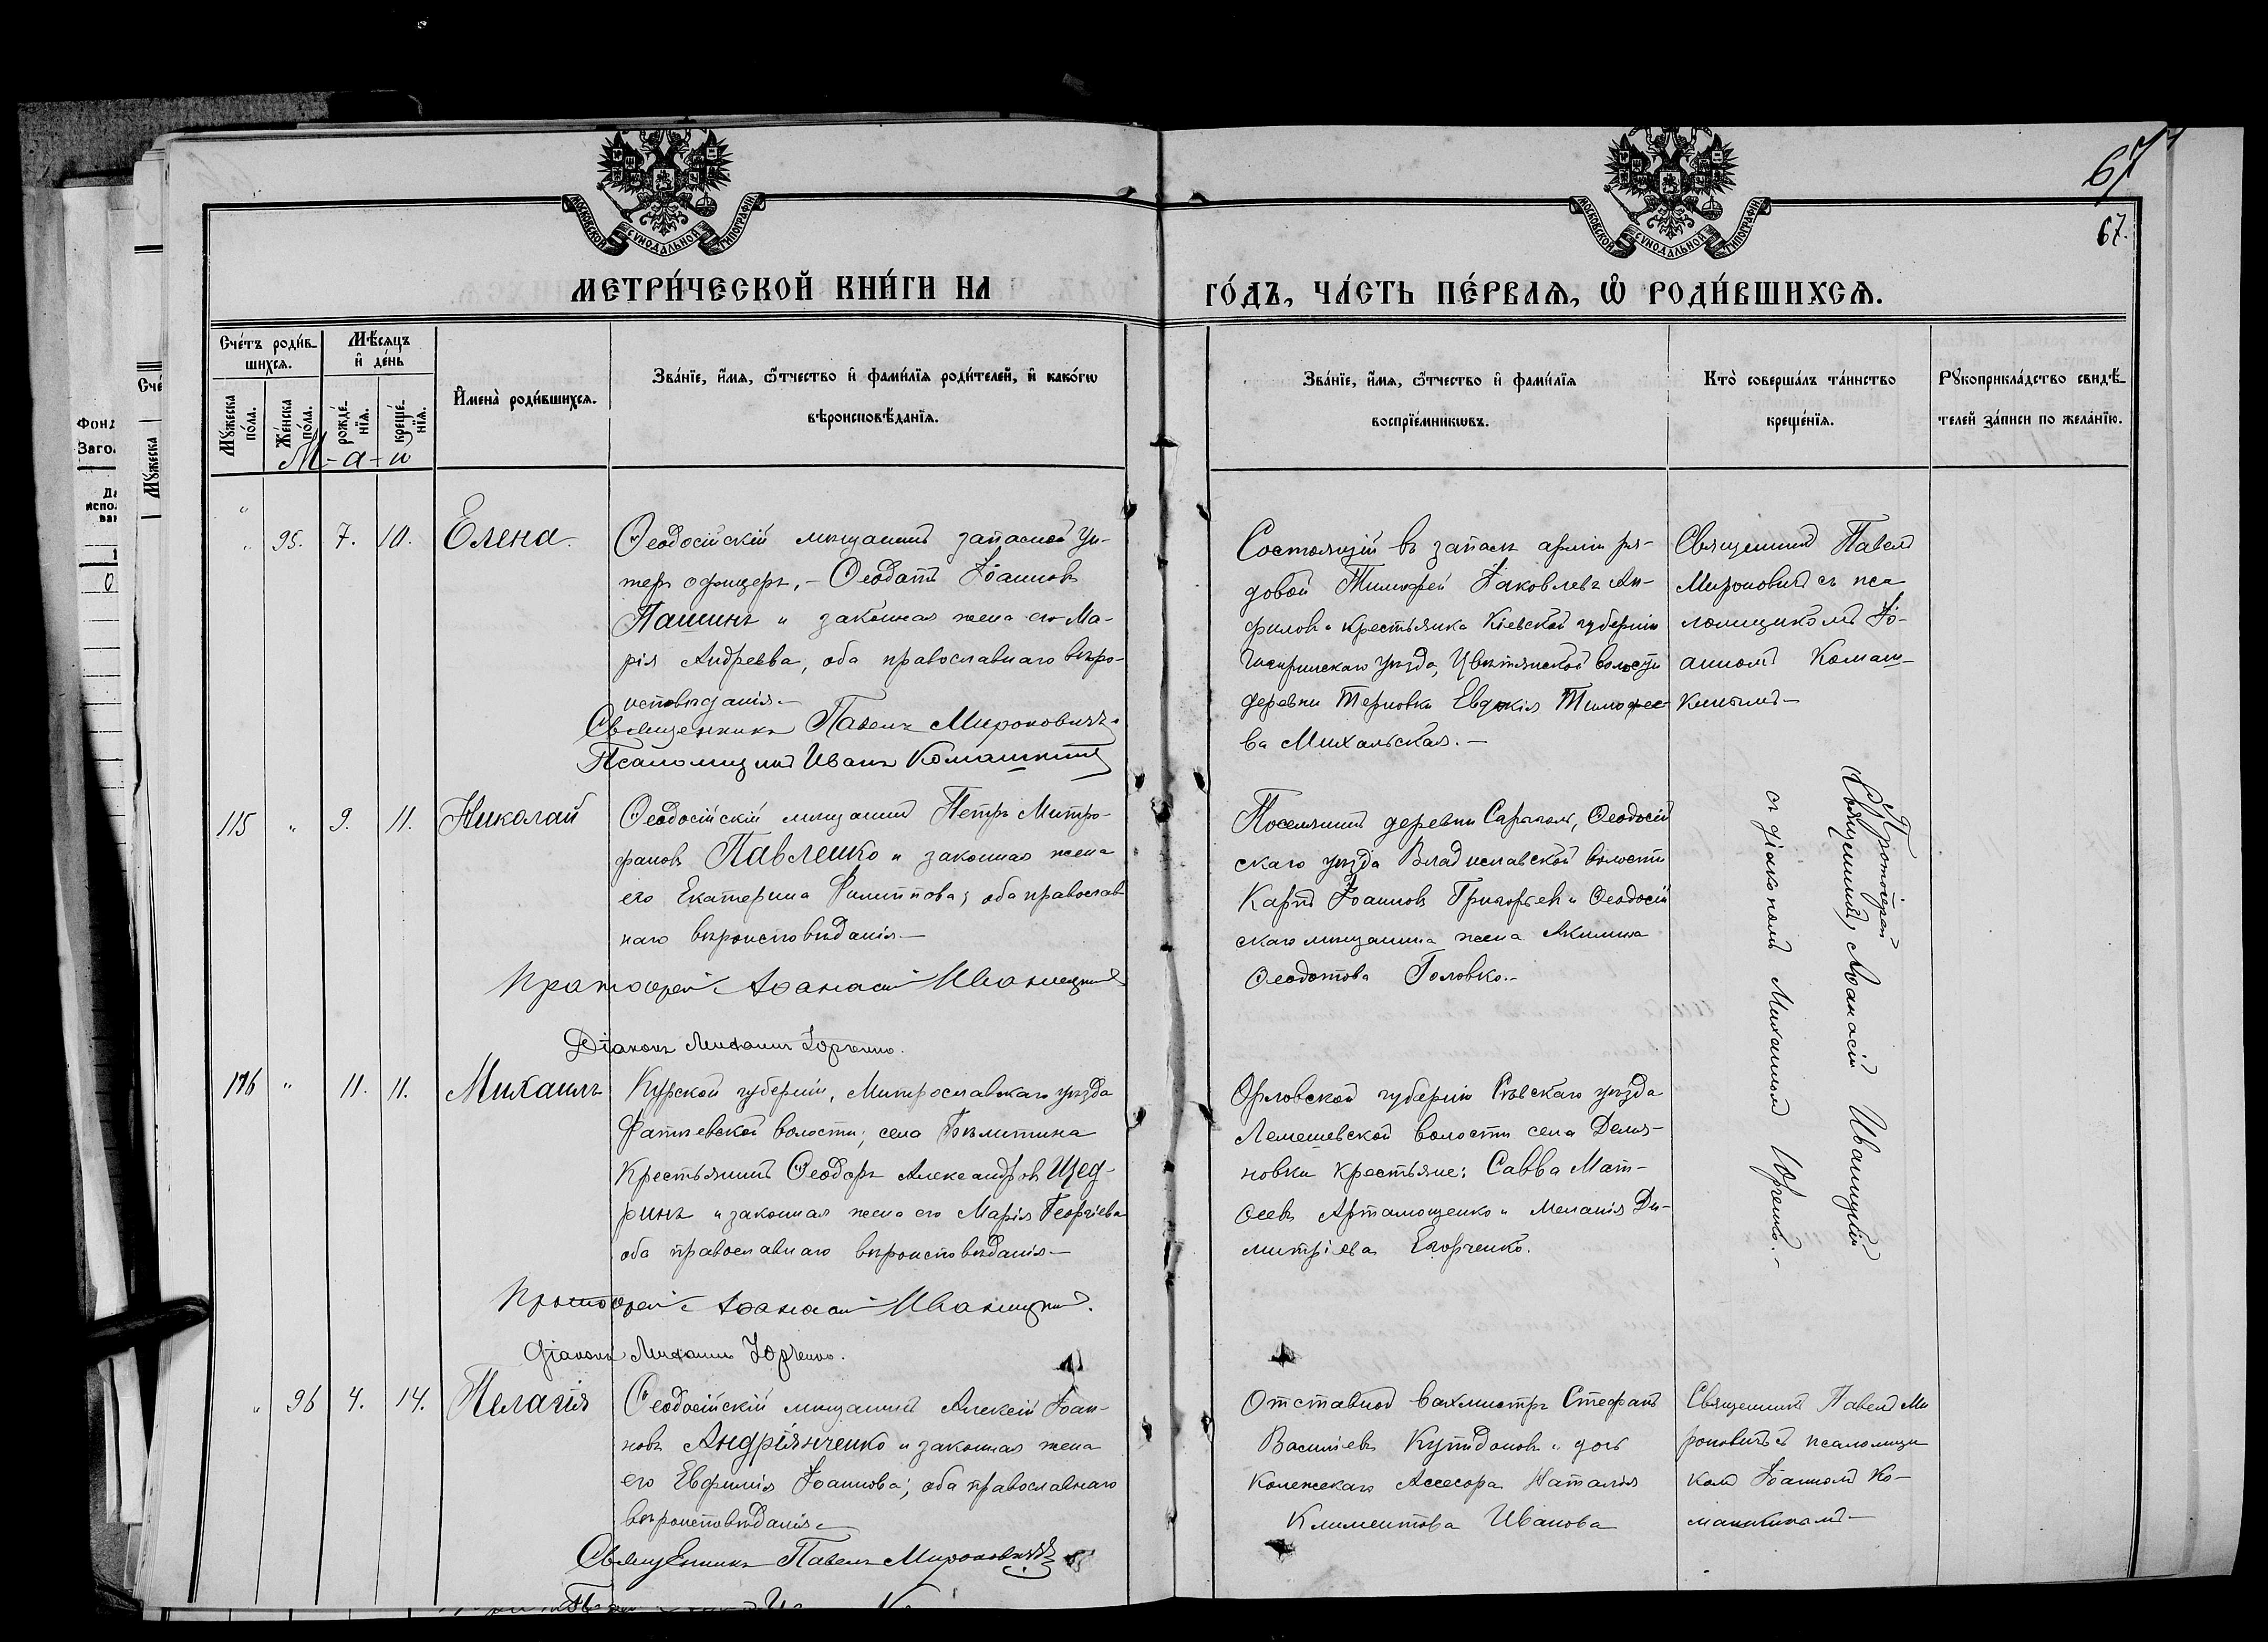 67
67.
МОСКОВСКОЙ СѴНОДАЛЬНОЙ ТИПОГРАФІИ
МОСКОВСКОЙ СѴНОДАЛЬНОЙ ТИПОГРАФІИ
МЕТРИ́ЧЕСКОЙ КНИ́ГИ НА
ГО́ДЪ, ЧА́СТЬ ПЕ́РВАѦ, Ѡ РОДИ́ВШИХСѦ.
Сче́тъ роди́в-
шихсѧ.
Мѣ́сѧцъ
и҆ де́нь
Мꙋ́жеска
по́ла.
Же́нска
по́ла.
рожде́-
нїѧ.
креще́-
нїѧ.
И҆мена̀ роди́вшихсѧ.
Зва́нїе, и҆́мѧ, ѻ҆́тчество и҆ фами́лїѧ роди́телей, и҆ како́гѡ
вѣроисповѣ́данїѧ.
Зва́нїе, и҆́мѧ, ѻ҆́тчество и҆ фами́лїѧ
воспрїе́мникѡвъ.
Кто̀ соверша́лъ та́инство
креще́нїѧ.
Рꙋкоприкла́дство свидѣ́-
телей за́писи по жела́нїю.
Фонд
Заго
М-а-й
" 95. 7. 10. Елена.
Ѳеодосійскій мѣщанинъ запасной ун-
теръ офицеръ, - Ѳеодотъ Іоанновъ
Пашинъ и законная жена его Ма-
рія Андреева, оба православнаго вѣро-
исповѣданія.-
Священникъ Павелъ Мироновичъ.
Псаломщикъ Иванъ Комашкинъ
Состоящій въ запасѣ арміи ря-
довой Тимофей Іаковлевъ Ан-
филовъ и крестьянка Кіевской губерніи
Чигиринскаго уѣзда, Цвѣтянской волости
деревни Терновки Евдокія Тимофее-
ва Михальская.-
Священникъ Павелъ
Мироновичъ съ пса
ломщикомъ Іо-
анномъ Комаш-
кинымъ-
115 " 9. 11. Николай
Ѳеодосійскій мѣщанинъ Петръ Митро-
фановъ Павленко и законная жена
его Екатерина Филиппова; оба православ
наго вѣроисповѣданія.-
Протоіерей Аѳанасій Иваницкій
Діаконъ Михаилъ Юрченко.
Поселянинъ деревни Сарыголь, Ѳеодосій
скаго уѣзда Владиславской волости
Карпъ Іоанновъ Григорьевъ и Ѳеодосій
скаго мѣщанина жена Акилина
Ѳеодотова Головко.-
Протоіерей
Священникъ Аѳанасій Иваницкій
съ діакономъ Михаиломъ Юрченко.-
116 " 11. 11. Михаилъ
Курской губерніи, Митрославскаго уѣзда
Фатѣевской волости; села Бѣлитина
Крестьянинъ Ѳеодоръ Александровъ Щед-
ринъ и законная жена его Марія Георгіева
оба православнаго вѣроисповѣданія-
Протоіерей Аѳанасій Иваницкій.
Діаконъ Михаилъ Юрченко.
Орловской губерніи Сѣвскаго уѣзда
Лемешевской волости села Демя-
новки крестьяне: Савва Мат-
ѳеевъ Артамощенко и Меланія Ди-
митріева Егорченко.
" 96 4. 14. Пелагія
Ѳеодосійскій мѣщанинъ Алексій Іоан-
новъ Андріянченко и законная жена
его Евфимія Іоаннова; оба православнаго
вѣроисповѣданія-
Священникъ Павелъ Мироновичъ
Отставной вахмистръ Стефанъ
Васильевъ Купидоновъ и дочь
Колежскаго Ассесора Наталія
Климентова Иванова
Священникъ Павелъ Ми
роновичъ съ псаломщи
комъ Іоанномъ Ко-
машкинымъ-